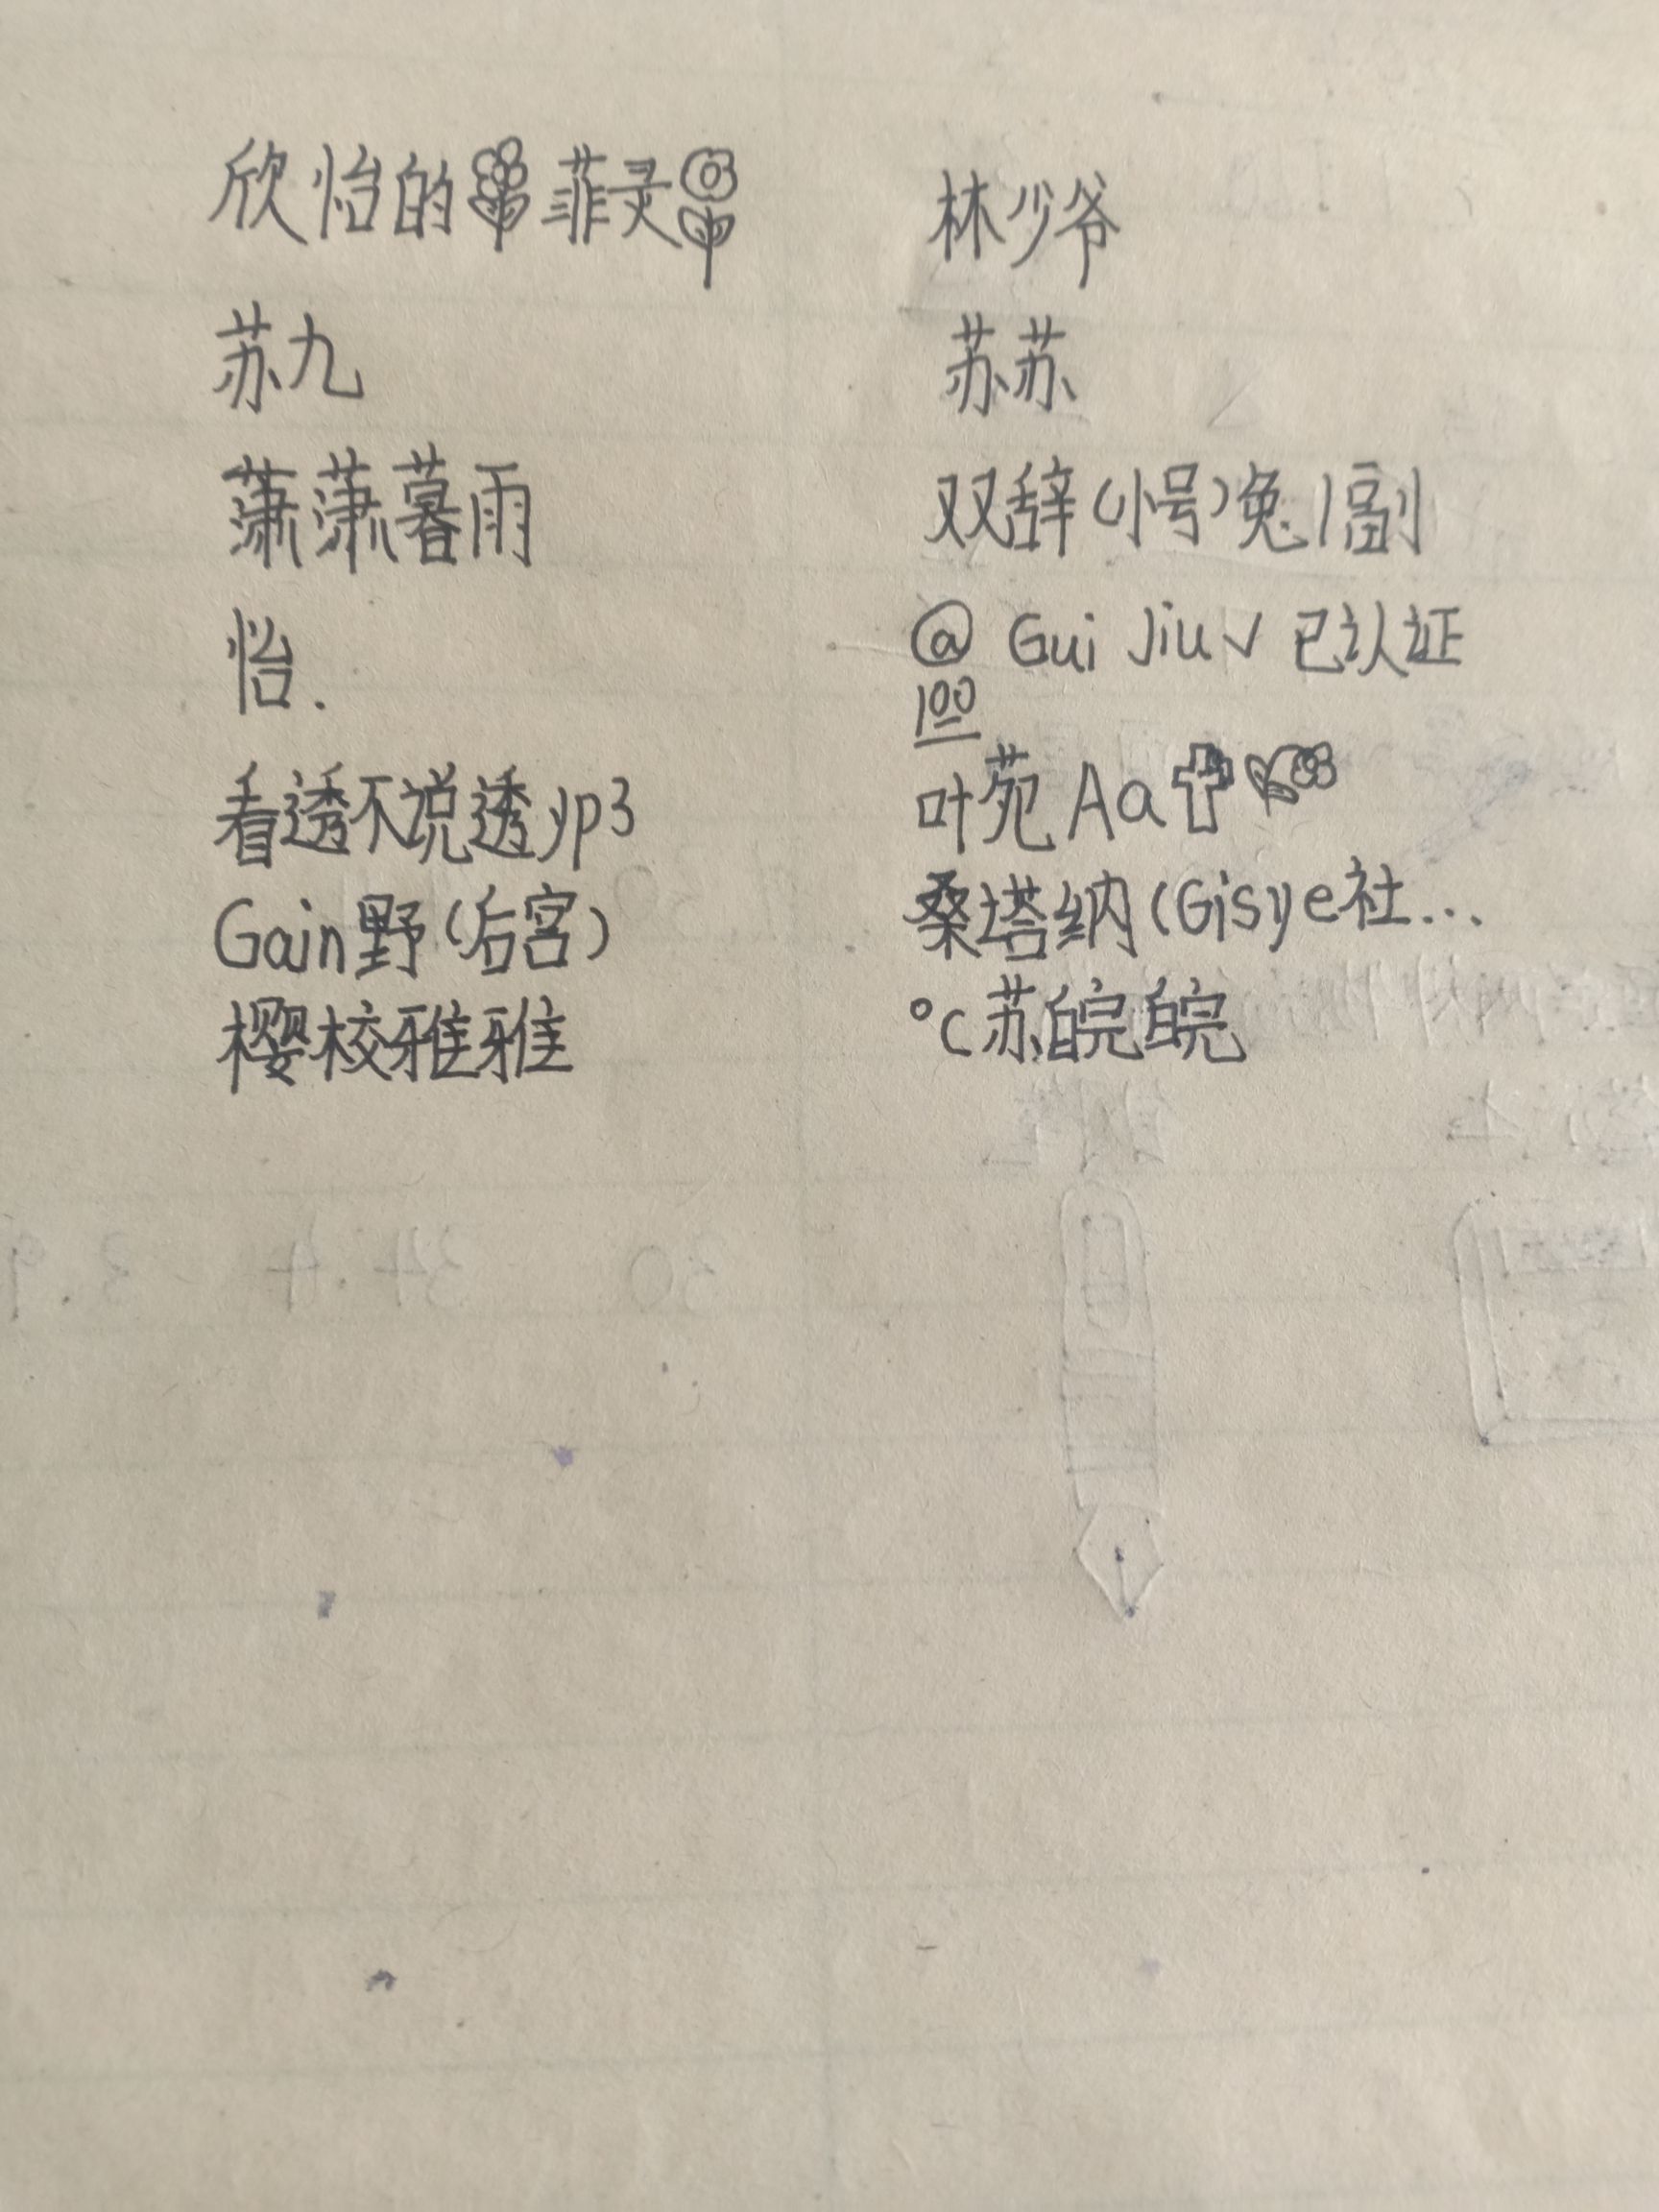 欣怡的菲灵
苏九
萧萧暮雨
怡.
看透不说透yp3
Gain野(后宫)
樱校雅雅
林少爷
苏苏
双辞(小号)兔1副
@ Gui Jiu√ 已认证
100
叶苑Aa
桑塔纳(Gisye社...
°c苏皖皖